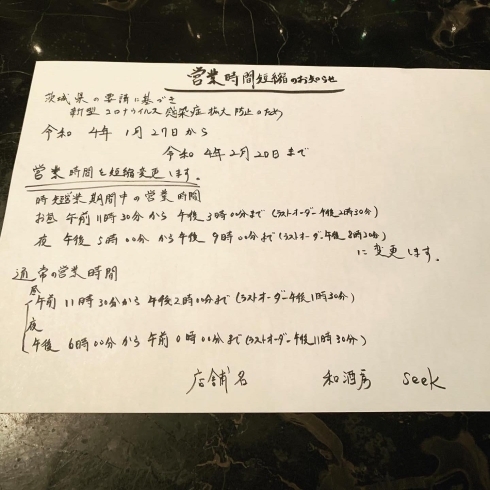 営業時間短縮のお知らせ
茨城県の要請に基づき
新型コロナウイルス感染症拡大防止のため
令和 4年 1月27日から
令和 4年2月20日まで
営業時間を短縮変更します。
時短営業期間中の営業時間
お昼 午前11時30分から午後3時00分まで(ラストオーダー午後2時30分)
夜 午後5時00分から午後9時00分まで(ラストオーダー午後8時30分)
に変更します。
通常の営業時間
昼
午前11時30分から午後2時00分まで(ラストオーダー午後1時30分)
夜
午後6時00分から午前0時00分まで(ラストオーダー午後11時30分)
店舗名 和酒房 seek